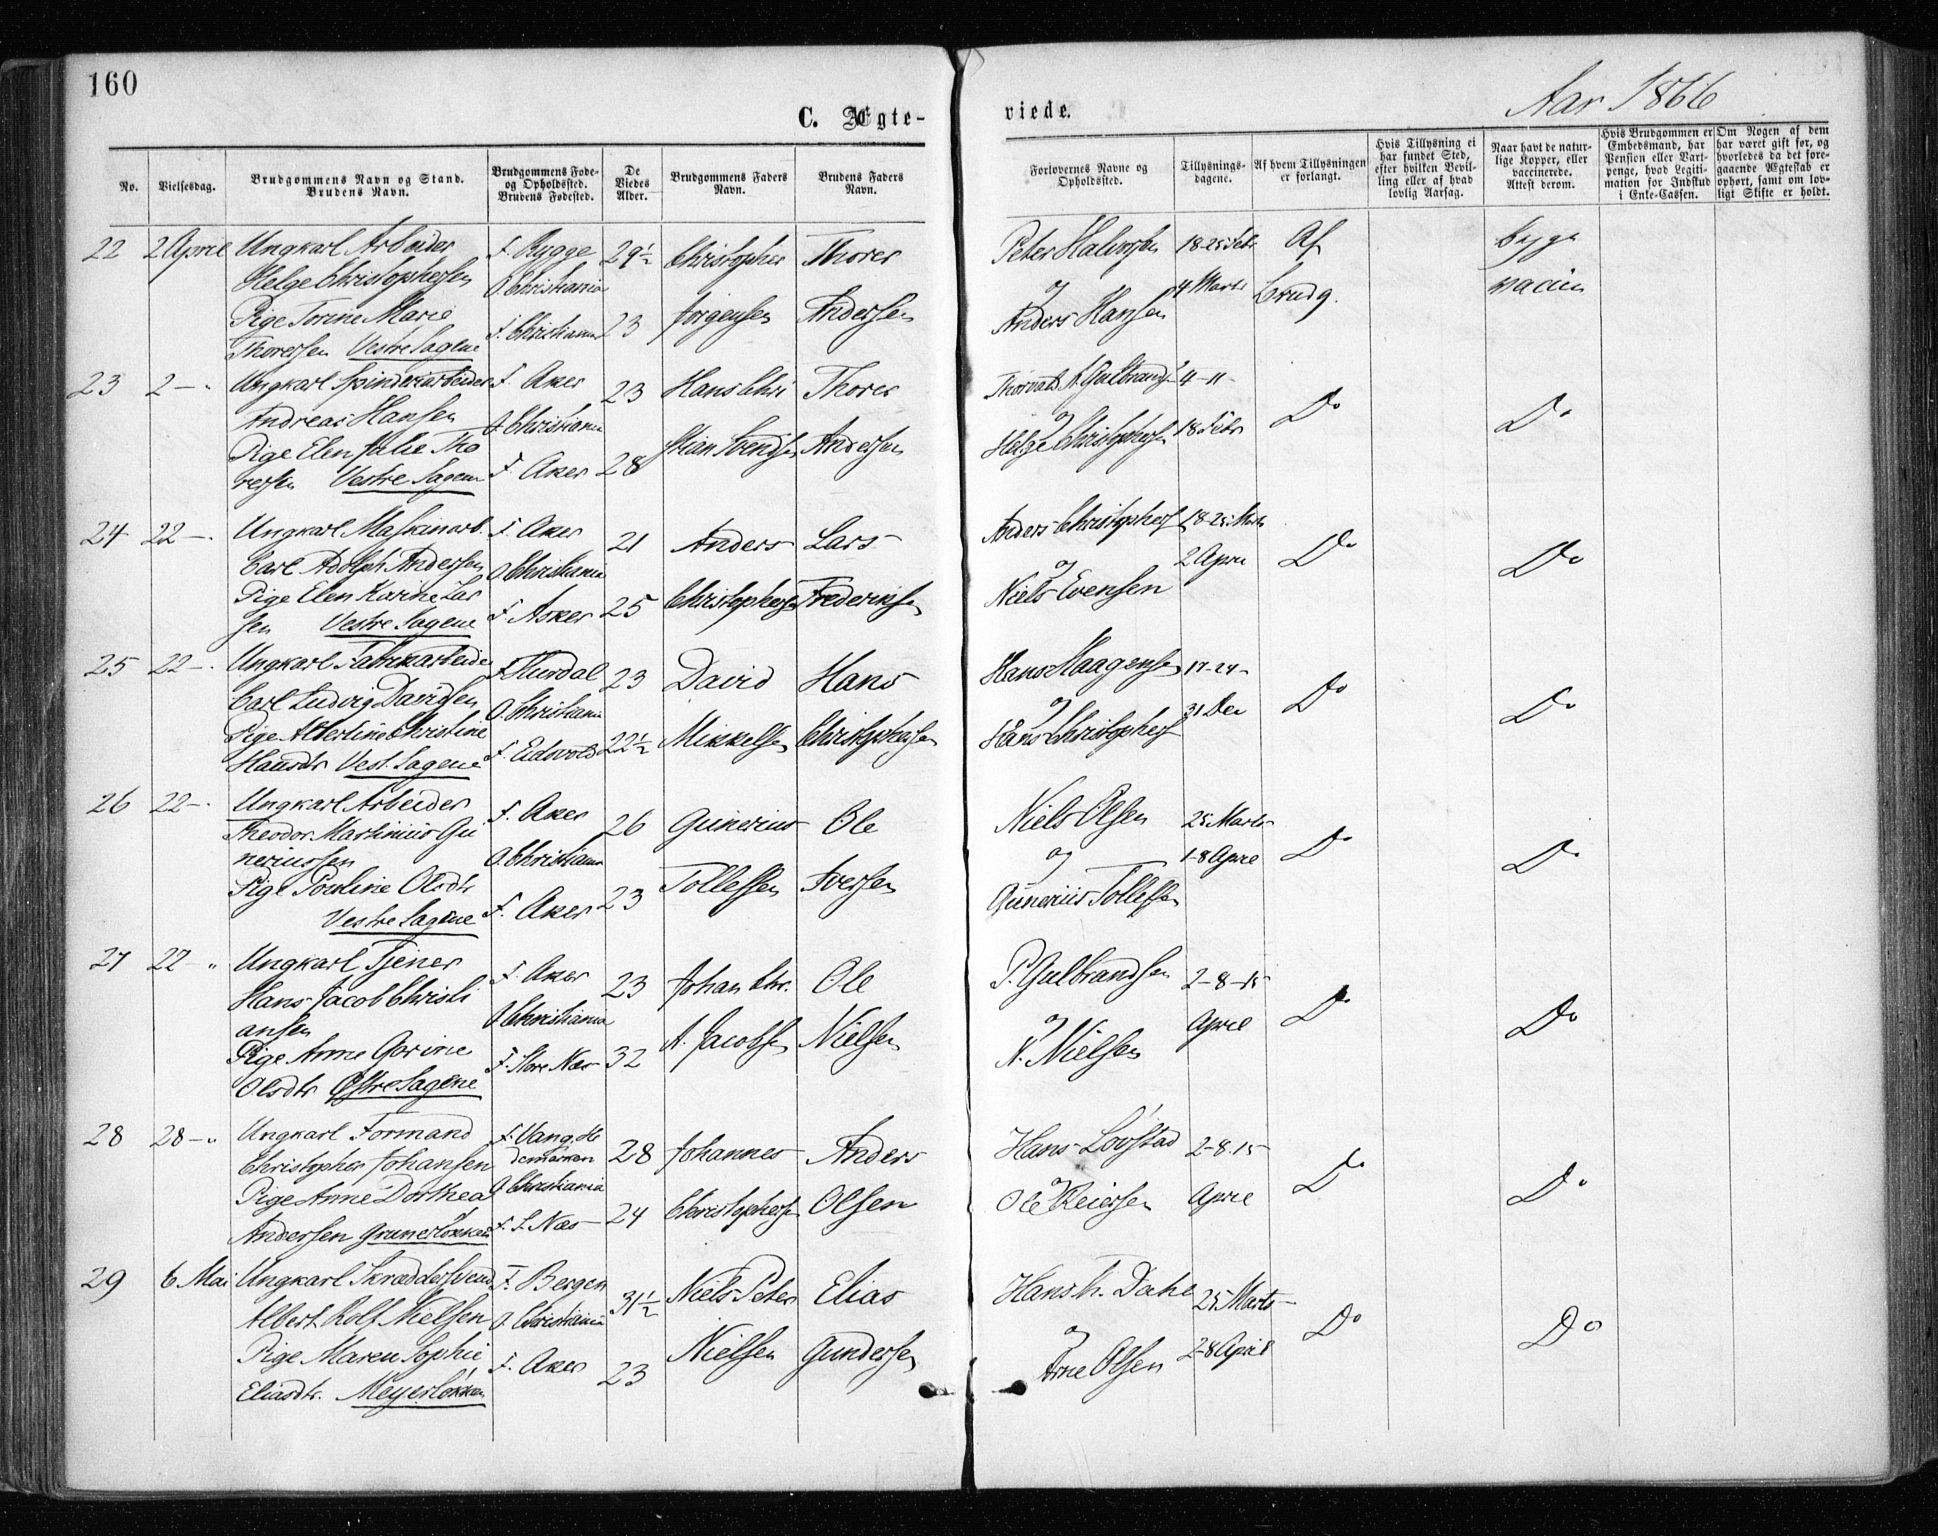 160
Aar 1866
C. Ægte-
viede.
No.
Vielsesdag.
Brudgommens Navn og Stand.
Brudens Navn.
Brudgommens Føde-
og Opholdssted.
Brudens Fødested.
De
Viedes
Alder.
Brudgommens Faders
Navn.
Brudens Faders
Navn.
Forlovernes Navne og
Opholdssted.
Tillysnings-
dagene.
Af hvem Tillysningen
er forlangt.
Hvis Tillysning ei
har fundet Sted,
efter hvilken Bevil-
ling eller af hvad
lovlig Aarsag.
Naar havt de natur-
lige Kopper, eller
vaccinerede.
Attest derom.
Hvis Brudgommen er
Embedsmand, har
Pension eller Vart-
penge, hvad Legiti-
mation for Indskud
i Enke-Cassen.
Om Nogen af dem
har været gift før, og
hvorledes da det fore-
gaaende Ægteskab er
ophørt, samt om lov-
ligt Skifte er holdt.
22 2 April Ungkarl Arbeider F. Rygge 29½ Christopher Thorer Peter Halvorsen 18-25 Febr Af begge
Helge Christophersen O. Christiania og 4 Marts Brudg. vaccin
Pige Torine Marie F. Christiania 23 Jørgensen Andersen Anders Hansen
Thoresen Vestre Sagene
23 2 — " Ungkarl Spinderiarbeider F. Aker 23 Hans Chri Thorer Thorvald A. Gulbrands 4-11- Do Do
Andreas Hansen O. Christiania og
Pige Elen Julie Tho stian Svendsen Andersen Helge Christophersen 18 Febr
resen Vestre Sagene F. Aker 28
24 22 — " Ungkarl Maskinarb. F. Aker 21 Anders Lars Anders Christophers 18-25 Marts Do Do
Carl Adolph Andersen O. Christiania og 2 April
Pige Elen Karine Lar F. Asker 25 Christophersen Frederiksen Niels Evensen
sen Vestre Sagene
25 22 — " Ungkarl Fabrikarbeider F. Hurdal 23 David Hans Hans Haagensen 17-24- Do Do
Carl Ludvig Davidsen O. Christiania og 31 Dec
Pige Albertine Christine F. Eidsvold 22½ Mikkelsen Christophersen Hans Christophers
Hansdtr Vest. Sagene
26 22 — " Ungkarl Arbeider F. Aker 26 Gunerius Ole Niels Olsen 25 Marts Do Do
Theodor Martinius Gu O. Christiania og 1-8 April
neriussen
Pige Pouline Olsdtr F. Aker 23 Tollefsen Iversen Gunerius Tollefsen
Vestre Sagene
27 22 — " Ungkarl Tjener F. Aker 23 Johan Chr. Ole P. Gulbrandsen 2-8-15 Do Do
Hans Jacob Christi O. Christiania og April
ansen
Pige Anne Gorine F. Store Næs 32 A. Jacobsen Nielsen N. Nielsen
Olsdtr Østre Sagene
28 28 — " Ungkarl Formand F. Vang, He 28 Johannes Anders Hans Løvstad 2-8-15 Do Do
Christopher Johansen demarken og
Pige Anne Dorthea O. Christiania 24 Christophersen Olsen Ole Reiersen April
Andersen Grünerløkken F. S. Næs
29 6 Mai Ungkarl Skræddersvend F. Bergen 31½ Niels Peter Elias Hans H. Dahl 25 Marts Do Do
Albert Rolf Nielsen O. Christiania og
Pige Maren Sophie F. Aker 23 Nielsen Gundersen Arne Olsen 2-8 April
Eliasdtr. Meyerløkken